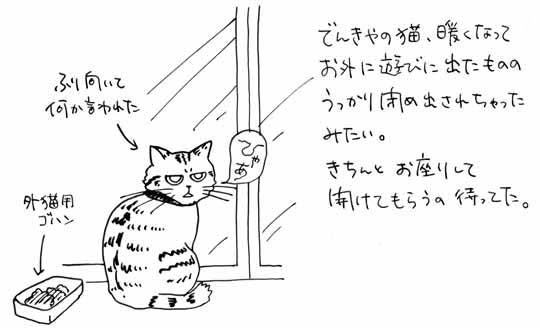 でんきやの猫、暖くなって
お外に遊びに出たものの
うっかり閉め出されちゃった
みたい。
きちんとお座りして
開けてもらうの待ってた。
ふり向いて
何か言われた
ひゃあ
外猫用
ゴハン